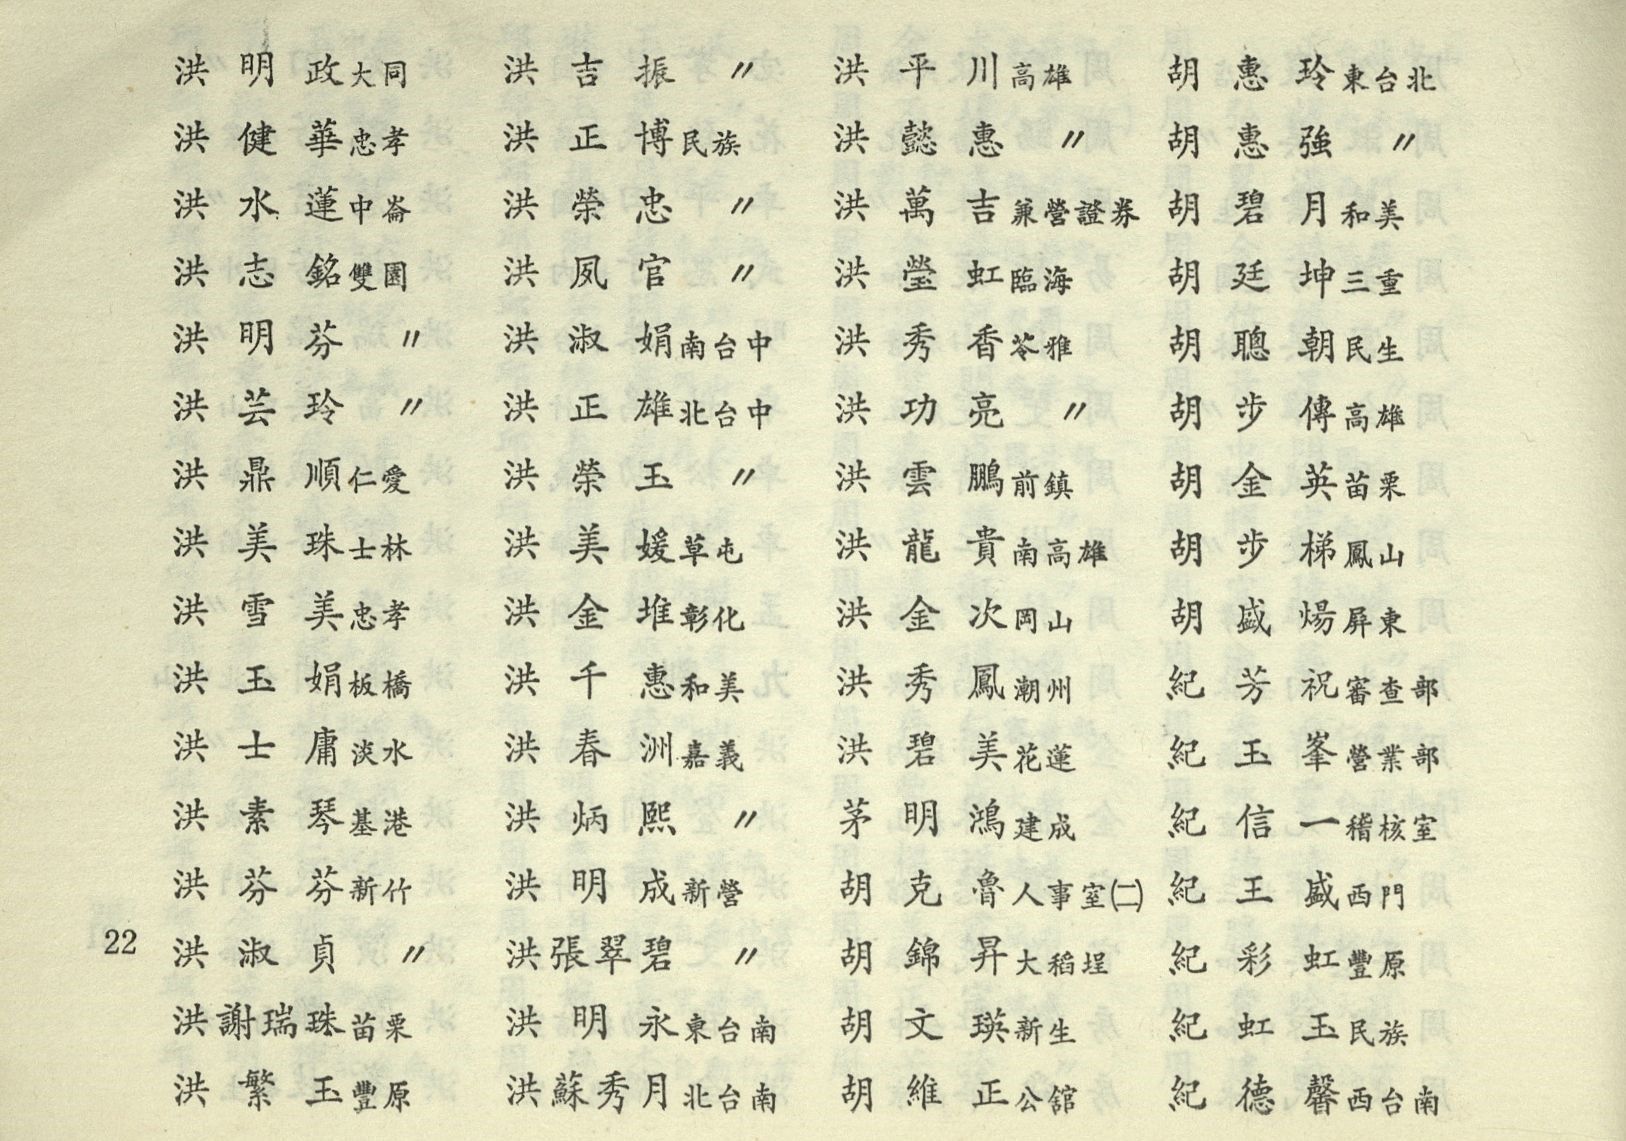 洪明政大同
洪健華忠孝
洪水蓮中崙
洪志銘雙園
洪明芬〃
洪芸玲〃
洪鼎順仁愛
洪美珠士林
洪雪美忠孝
洪玉娟板橋
洪士庸淡水
洪素琴基港
洪芬芬新竹
洪淑貞〃
洪謝瑞珠苗栗
洪繁玉豐原
洪吉振〃
洪正博民族
洪榮忠〃
洪夙官〃
洪淑娟南台中
洪正雄北台中
洪榮玉〃
洪美媛草屯
洪金堆彰化
洪千惠和美
洪春洲嘉義
洪炳熙〃
洪明成新營
洪張翠碧〃
洪明永東台南
洪蘇秀月北台南
洪平川高雄
洪懿惠〃
洪萬吉兼營證券
洪瑩虹臨海
洪秀香苓雅
洪功亮〃
洪雲鵬前鎮
洪龍貴南高雄
洪金次岡山
洪秀鳳潮州
洪碧美花蓮
茅明鴻建成
胡克魯人事室㈡
胡錦昇大稻埕
胡文瑛新生
胡維正公館
胡惠玲東台北
胡惠強〃
胡碧月和美
胡廷坤三重
胡聰朝民生
胡步傳高雄
胡金英苗栗
胡步梯鳳山
胡盛煬屏東
紀芳祝審查部
紀玉峯營業部
紀信一稽核室
紀王盛西門
紀彩虹豐原
紀虹玉民族
紀德馨西台南
22